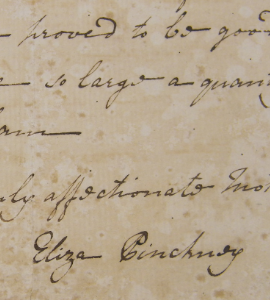 proved to be good
so large a quan
am
uly affectionate Mo
Eliza Pinckney